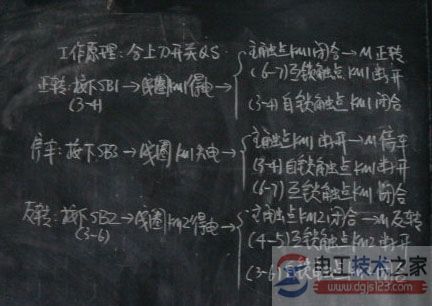 工作原理：合上刀开关QS.
正转：按下SB1→线圈KM1得电→
(3-4)
主触点KM1闭合→M正转
(6-7)互锁触点KM1断开
(3-4)自锁触点KM1闭合
停车：按下SB3→线圈KM1失电→
主触点KM1断开→M停车
(3-4)自锁触点KM1断开
(6-7)互锁触点KM1闭合
反转：按下SB2→线圈KM2得电→
(3-6)
主触点KM2闭合→M反转
(4-5)互锁触点KM2断开
(3-6)自锁
电工技术之家
www.dgjs123.com